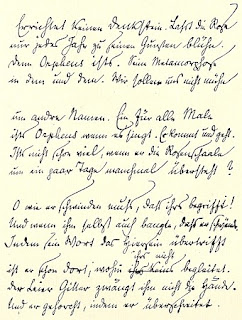 Errichtet keinen Denkstein. Lasst die Rose
nur jedes Jahr zu seinen Gunsten blühn.
Denn Orpheus ists. Seine Metamorphose
in dem und dem. Wir sollen uns nicht mühn
um andre Namen. Ein für alle Male
ists Orpheus wenn es singt. Er kommt und geht.
Ists nicht schon viel, wenn er die Rosenschaale
um ein paar Tage manchmal übersteht?
O wie er schwinden muss, dass ihrs begrifft!
Und wenn ihm selbst auch bangte, dass er schwände.
Indem sein Wort das Hiersein übertrifft
ihrs nicht
ist er schon dort, wohin begleitet.
Der Leier Gitter zwängt ihm nicht die Hände.
Und er gehorcht, indem er überschreitet.